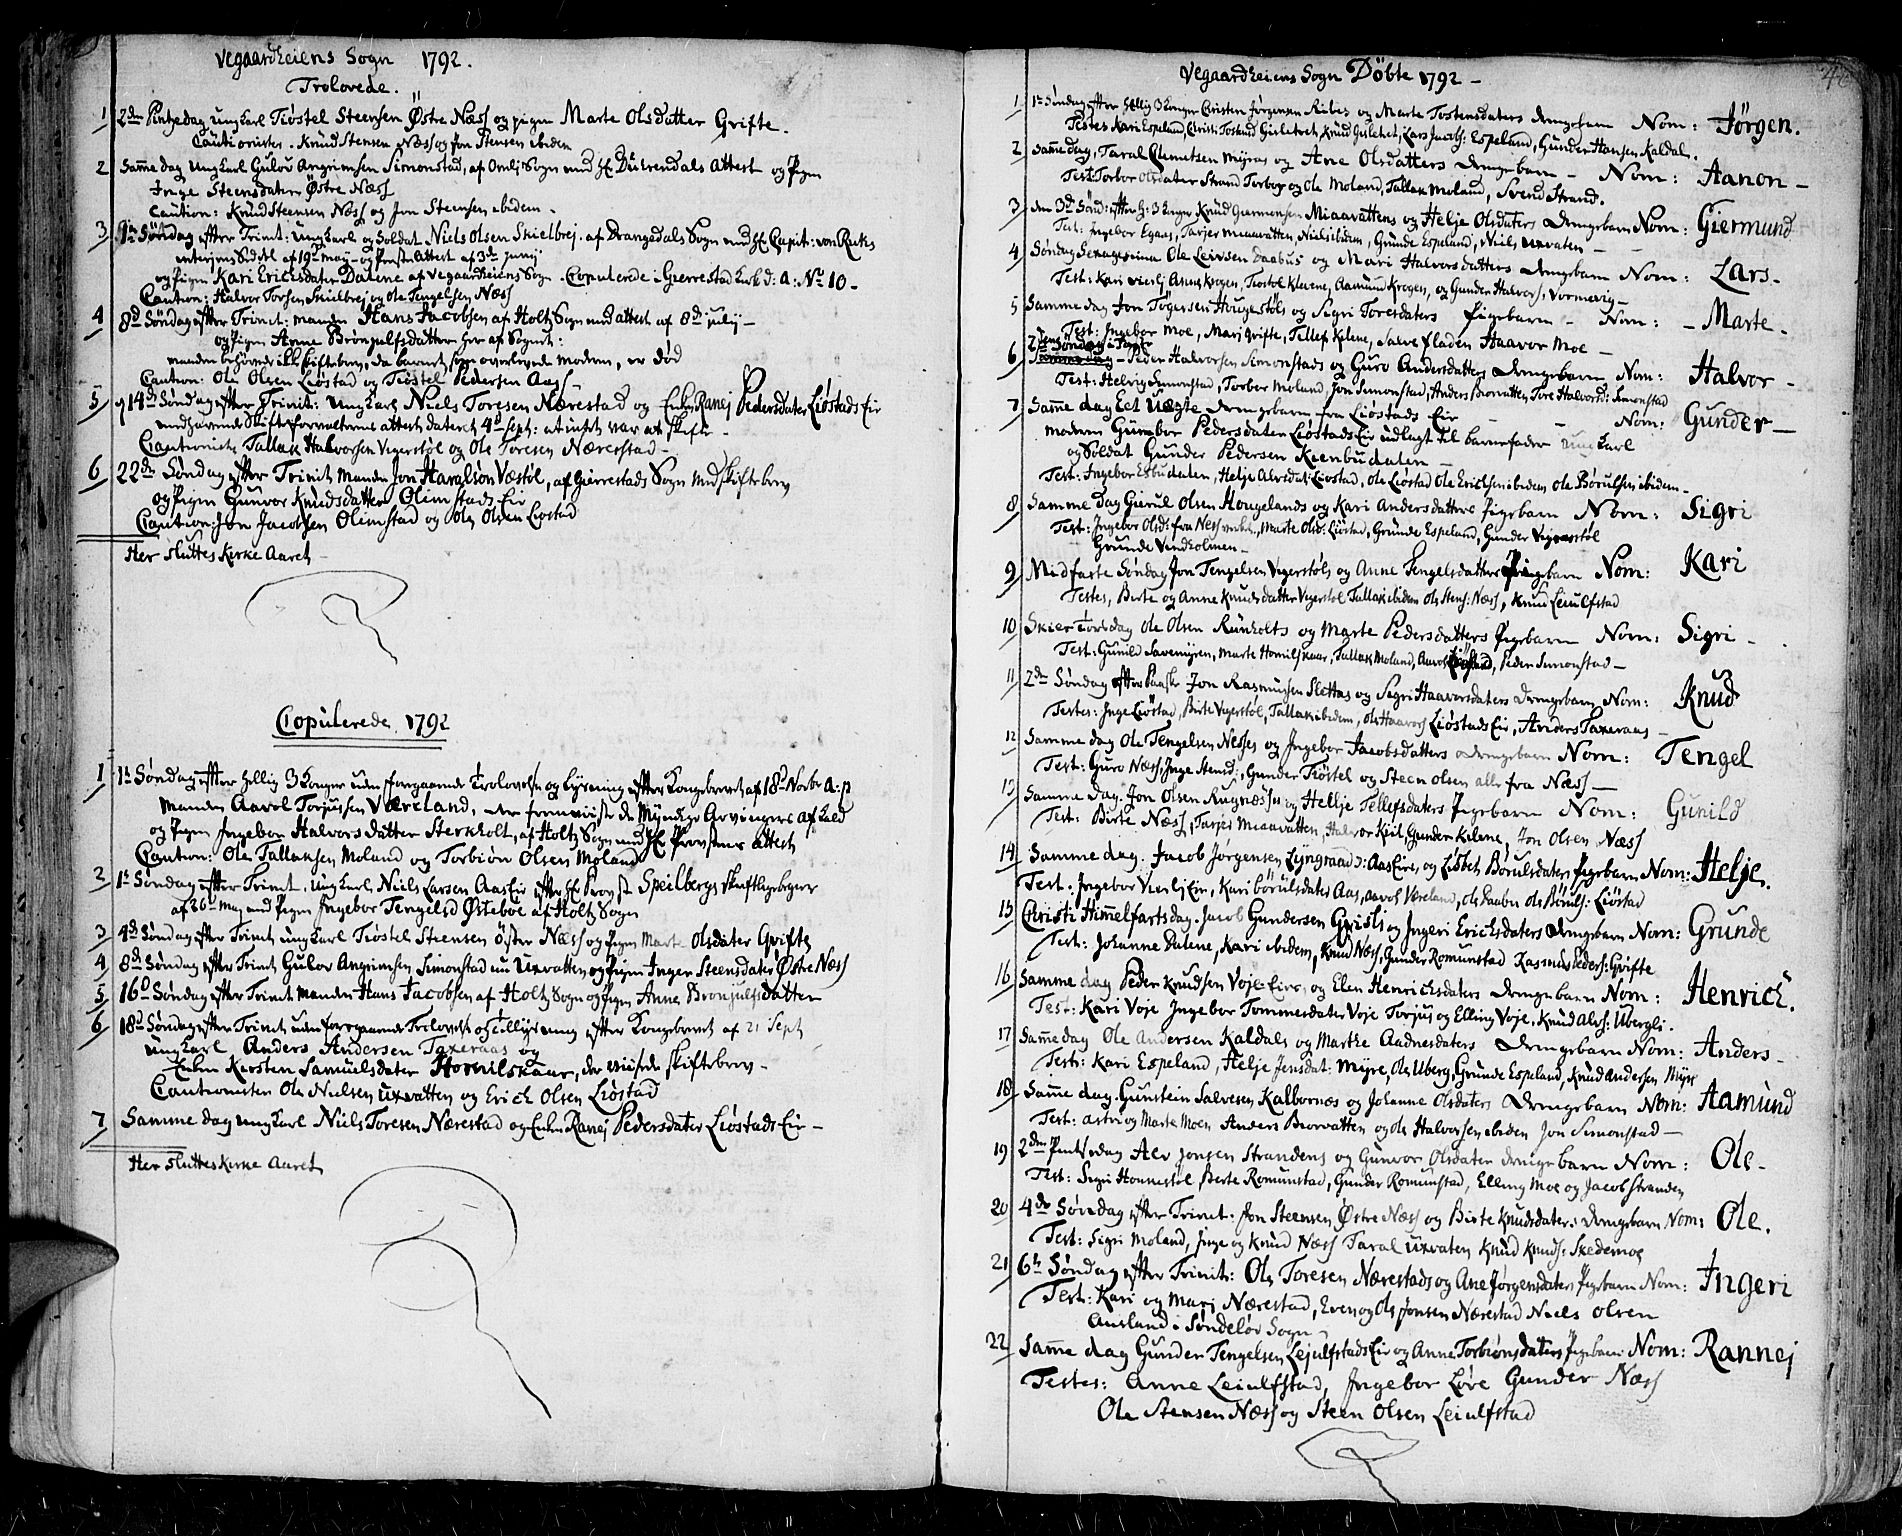 Vegaardheiens Sogn 1792.
Trolovede.
1 2den Pintzedag ungkarl Tiøstel Steensen Østre Næss og pigen Marte Olsdatter Grifte.
Cautionister. Knud Stensen Næss og Jon Stensen ibidem
2 Samme dag Ungkarl Gulov Angrimsen Simonstad, af Omli Sogn med Attest og Pigen
Inge Steensdatter Østre Næss
Caution: Knud Steensen Næss og Jon Steensen ibidem.
3 Søndag efter Trinit: Ungkarl og Soldat Niels Olsen Skielbrej. af Drangedals Sogn med Hr Capit: von
Seddel af 19de may og Attest af 3de junij
og Pigen Kari Ericksdatter Dalene af Vegaardheiens Sogn. Copulerede i Gierrestad d: A: No 10.
Caution: Halvor Torsen Skielbrej og Ole Tengelsen Næss
4 8de Søndag efter Trinit: manden Hans Jacobsen af Holtz Sogn med attest af 8de julij
og Pigen Anne Bronjulfsdatter her af Sognet:
manden behøvede ikke skiftebrev, da barnet, som overlevede modern, er død
Caution: Ole Olsen Liøstad og Tiøstel Pedersen Aas
5 14de Søndag efter Trinit: Ungkarl Niels Toresen Nærestad og Enken Ranej Pedersdatter Liøstads Eir
Skifteforvalterens attest dateret 4de Sept: at intet var at skifte
Cautionister Tallak Halvorsen Vegerstøl og Ole Toresen Nærestad
6 22de Søndag efter Trinit manden Jon Haralsøn Væstøl, af Gierrestads Sogn med skiftebrev
og Pigen Gunvor Knudsdatter Olimstads Eir
Caution: Jon Jacobsen Olimstad og Ole Olsen Liøstad
Her sluttes Kirke Aaret
Copulerede 1792
1 1te Søndag efter Hellig 3 Konger uden foregaaende Trolovelse og Lysning efter Kongebrevet af 18de Novbr A: p
Manden Aavol Torjussen Væreland, der
og Pigen Ingebor Halvorsdatter Sterkholt, af Holtz Sogn med Hr Provstens attest
Caution: Ole Tallaksen Moland og Torbiøn Olsen Moland
2 1te Søndag efter Trinit. Ungkarl Niels Larsen Aas Eir efter Hr Provst Speilbergs skriftlige begier
af 26de Maj med Pigen Ingebor Tengelsd Østebøe af Holtz Sogn
3 4de Søndag efter Trinit ungkarl Tiøstel Steensen Øster Næss og Pigen Marte Olsdater Grifte
4 8de Søndag efter Trinit Gulov Angrimsen Simonstad nu Uxvatten og Pigen Inger Steensdater Østre Næss
5 16de Søndag efter Trinit manden Hans Jacobsen af Holtz Sogn og Pigen Anne Bronjulfsdatter
6 18de Søndag efter Trinit uden foregaaende Trolovelse og Tillysning efter Kongebrevet af 21 Sept
Ungkarl Anders Andersen Taxeraas og
Enken Kirsten Samuelsdater Homilskaar, der skiftebrev
Cautionisten Ole Nielsen Uxvatten og Erich Olsen Liøstad
7 Samme dag ungkarl Niels Toresen Nærestad og Enken Ranej Pedersdater Liøstads Eir
Her sluttes Kirke Aaret
Vegaardheiens Sogn Døbte 1792
1 1te Søndag efter Hellig 3 Konger Christen Jørgensen og Marte Tostensdaters Drengebarn Nom: Jørgen.
Testes Kari Espeland, Knud Lars Jacobs: Espeland, Gunder Hansen Kaldal.
2 Samme dag, Taral Clemetsen Myras og Ane Olsdatters Drengebarn Nom: Aanon
Test: Torbor Olsdater Strand Torbor og Ole Moland, Tallak Moland, Svend Strand.
3 den 3de Sønd: efter H: 3 Konger Knud Giermonsen Miaavattens og Helje Olsdaters Drengebarn Nom: Giermund
Test: Ingebor Egaas, Tarjer Miaavatten, Niels ibidem, Grunde Espeland, Niels Uxvaten
4 Søndag Sexagesima Ole Leivsen Daabus og Mari Halvorsdatters Drengebarn Nom: Lars.
Test: Kari Vierlj Anne Krogen, Tiøstol Klevene, Aamund Krogen, og Gunder Halvors: Vormevig
5 Samme dag Jon Tøgersen Hougestøls og Sigri Toresdaters Pigebarn Nom: Marte.
Test: Ingebor Moe, Marj Grifte, Tellef Kelene, Salve Fladen Haavor Moe
6 Peder Halvorsen Simonstads og Guro Andersdatters Drengebarn Nom: Halvor
Test: Helvig Simonstad, Torber Moland, Jon Simonstad, Anders Biorvatten, Tore Halvorsd: Simonstad
7 Samme dag Eet Uægte Drengebarn fra Liøstads Eir Nom: Gunder
Modern Gunbor Pedersdater Liøstads Eir udlagt til barnefader ungkarl
og Soldat Gunder Pedersen Kienbudalen
Test: Ingebor Esbudalen, Helje Alvsdat: Liøstad, Ole Liøstad Ole Erichsen ibidem Ole Børulsen ibidem
8 Samme Dag Gierul Olsen Hougelands og Kari Andersdatters Pigebarn Nom: Sigri
Test: Ingebor Olsd: fra Næss Marte Olsd: Liøstad, Grunde Espeland, Gunder Vegerstøl
Grunde Vindholmen
9 Midfaste Søndag Jon Tengelsen Vegerstøls og Anne Tengelsdatters Pigebarn Nom: Kari
Testes, Birte og Anne Knudsdatter Vegerstøl Tallak ibidem Ole Stens: Næss, Knud Leiulfstad
10 Skier Torsdag Ole Olsen Runholts og Marte Pedersdatters Pigebarn Nom: Sigri
Test: Gunild Savemyren, Marte Homilskaar, Tallak Moland, Aavol Liøstad, Peder Simonstad
11 2den Søndag efter Paaske Jon Rasmussen Slettas og Sigri Haavorsdaters Drengebarn Nom: Knud
Testes: Inge Liøstad, Birte Vegerstøl, Tallak ibidem, Ole Haavors Liøstads Eir, Anders Taxeraas
12 Samme dag Ole Tengelsen Nesses og Ingebor Jacobsdatters Drengebarn Nom: Tengel
Test: Guro Næss, Inge Stensd: Gunder Tiøstel og Steen Olsen alle fra Næss
13 Samme dag: Jon Olsen og Hellje Tellefsdaters Pigebarn Nom: Gunild
Test: Birte Næss, Tarjei Miaavatten, Gunder Kelene, Jon Olsen Næss
14 Samme dag. Jacob Jørgensen Lyngraad o: Aas Eirs, og Lisbet Børulsdaters Pigebarn Nom: Helje.
Test: Ingebor Vierlj Eir, Kari Børulsdater Aas, Aavol Væreland, Ole Daabu Ole Børuls: Liøstad
15 Christi Himmelfartsdag. Jacob Gundersen Griftis og Ingeri Ericksdaters Drengebarn Nom: Grunde
Test: Johanne Dalene, Kari ibidem, Knud Næss, Gunder Romunstad Rasmus Peders: Grifte
16 Samme dag Peder Knudsen Voje Eirs, og Elen Henrichsdaters Drengebarn Nom: Henrich.
Test: Kari Voje Ingebor Tommesdater Voje Torjus og Elling Voje, Knud Alvs: Ubergli.
17 Samme dag Ole Andersen Kaldals og Marthe Aadnesdaters Drengebarn Nom: Anders
Test: Kari Espeland, Helje Jensdat: Myre, Ole Uberg, Grunde Espeland, Knud Andersen Myre
18 Samme dag. Gunstein Salvesen Kalbornos og Johanne Olsdaters Drengebarn Nom: Aamund
Test: Astri og Marte Moen Anders Biorvatten og Ole Halvorsen ibidem Jon Simonstad
19 2den Pintzedag Alv Jonsen Strandens og Gunvor Olsdater Drengebarn Nom: Ole
Test: Sigri Honnestøl Berte Romunstad, Gunder Romunstad, Elling Moe og Jacob Stranden
20 4de Søndag efter Trinit. Jon Steensen Østre Næss og Birte Knudsdaters Drengebarn Nom: Ole.
Test: Sigri Moland, Inge og Knud Næss Taral Uxvaten Knud Knuds: Skedemoe
21 6te Søndag efter Trinit: Ole Toresen Nærestads og Ane Jørgensdaters Pigebarn Nom: Ingeri
Test: Kari og Marj Nærestad, Even og Ole Jonsen Nærestad Niels Olsen
Ausland i Søndeløv Sogn
22 Samme dag Gunder Tengelsen Lejulfstads Eir og Anne Torbiønsdaters Pigebarn Nom: Rannej
Testes: Anne Leiulfstad, Ingebor Løve Gunder Næss
Ole Stensen Næss og Steen Olsen Leiulfstad